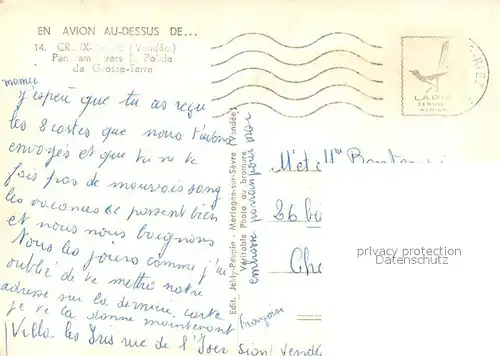 EN AVION AU-DESSUS DE...
14. CROIX-DE-VIE (Vendée)
Panorama vers la Pointe
de Grosse-Terre
LAPIE
SERVICE
AERIEN
mamie
j'espère que tu as reçu
les 8 cartes que nous t'avons
envoyés et que tu ne te
fais pas de mauvais sang
les vacances se passent bien
et nous nous baignons
tous les jours comme j'ai
oublié de te mettre notre
adresse sur la dernière carte
je te la donne maintenant
Villa les Iris rue de l'Iser Sion Vendée
embrasse parrain pour moi
Françoise
Edit. Jehly-Poupin - Mortagne-sur-Sèvre (Vendée)
Véritable Photo au bromure
Mr et Mme
26
privacy protection
Datenschutz